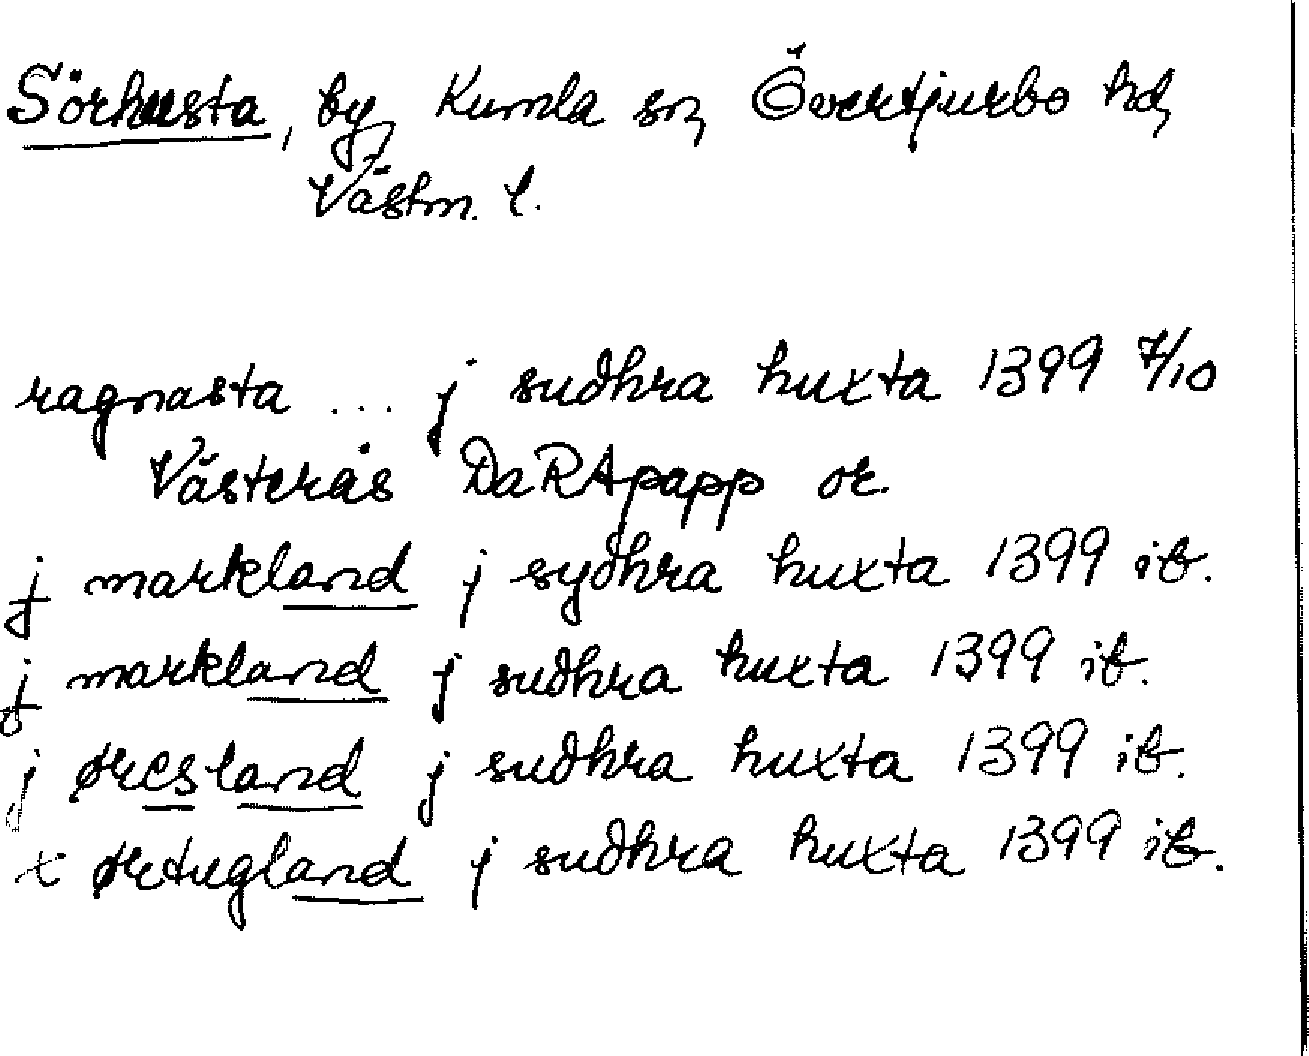 Sörhusta, by, Kumla sn, Övertjurbo hd,
Västm. l.
ragnasta ... j sudhra huxta 1399 7/10
Västerås DaRApapp or.
j markland j sydhra huxta 1399 ib.
j markland j sudhra huxta 1399 ib.
j øresland j sudhra huxta 1399 ib.
x ørtugland j sudhra huxta 1399 ib.